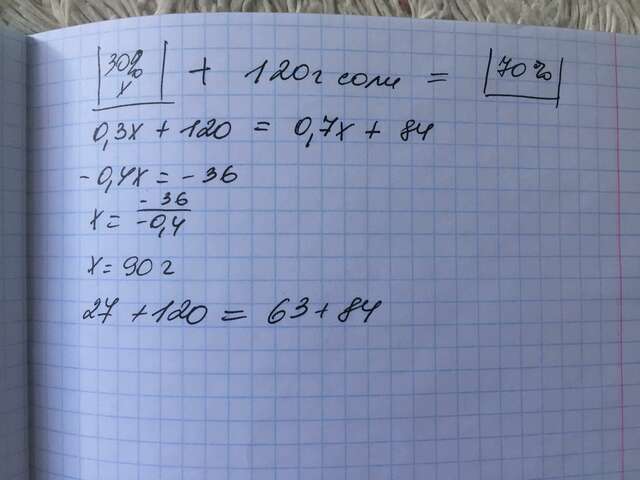 30% x + 120г соли = 70%
0,3x + 120 = 0,7x + 84
- 0,4x = - 36
x = - 36 / -0,4
x = 90 г
27 + 120 = 63 + 84